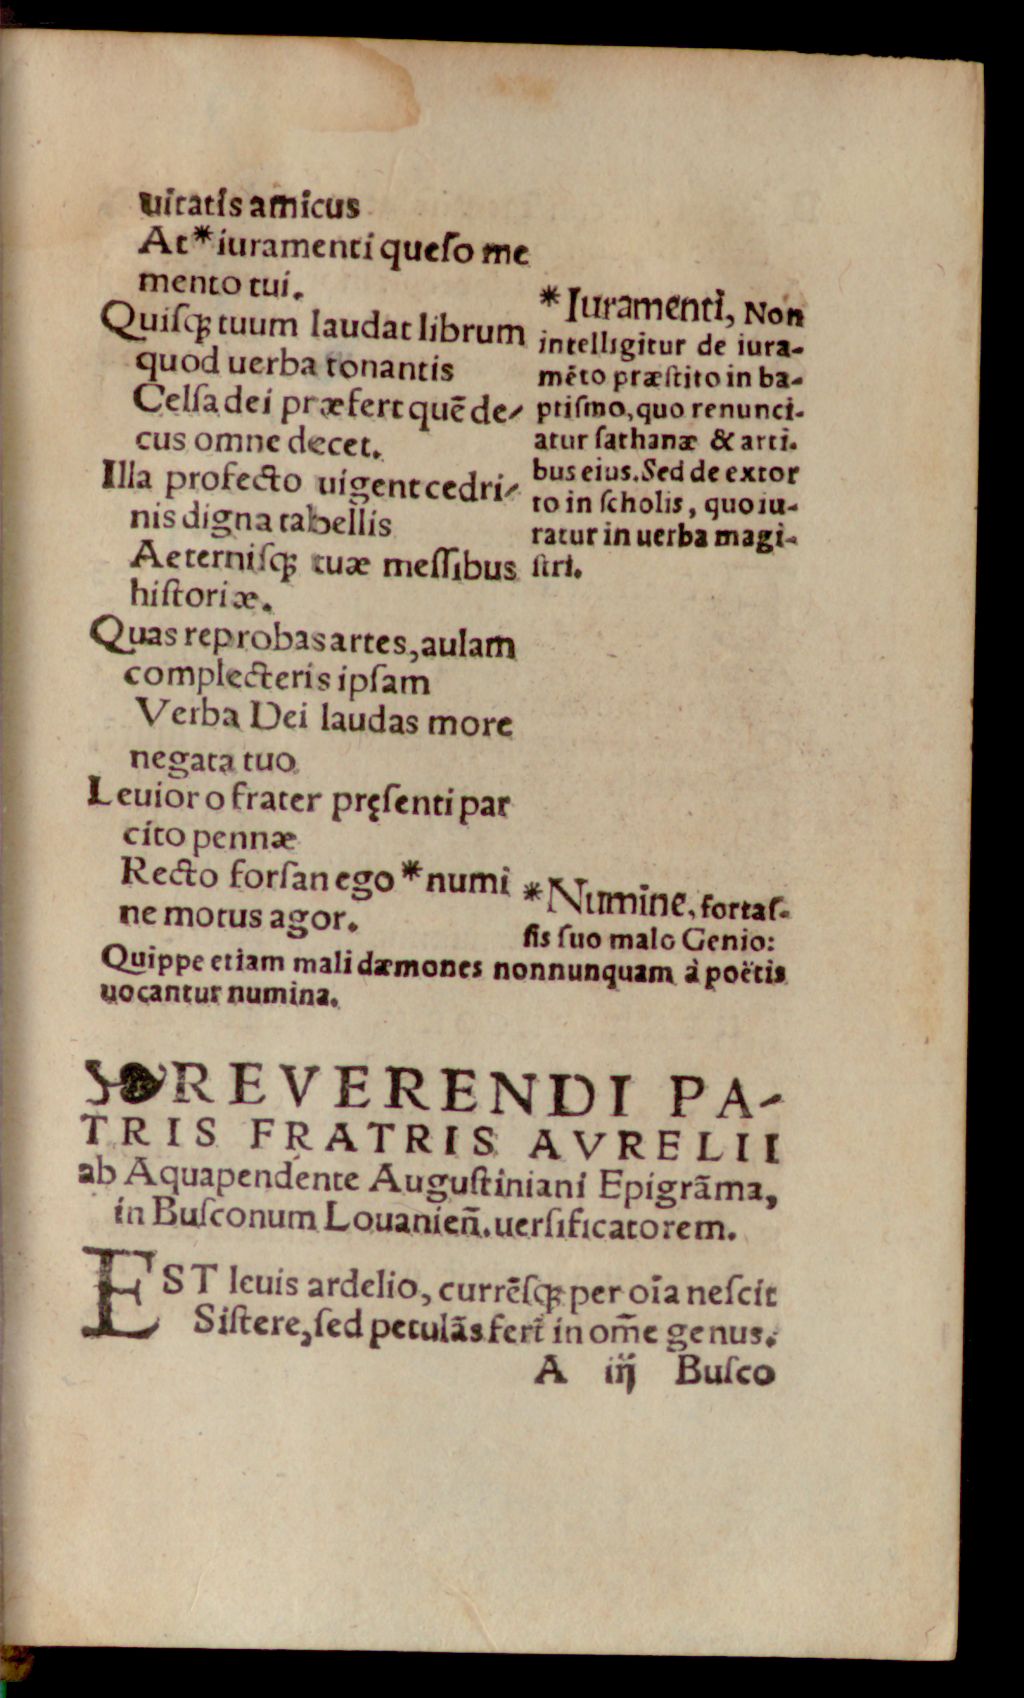 uitatis amicus
At*iuramenti queſo me
mento tui.
Quiſꝗ tuum laudat librum
quod uerba tonantis
Celſa dei præfert quē de⸗
cus omne decet.
Illa profecto uigent cedri⸗
nis digna tabellis
Aeterniſꝗ tuæ meſſibus
hiſtoriæ.
Quas reprobas artes, aulam
complecteris ipſam
Verba Dei laudas more
negata tuo
Leuior o frater pręſenti par
cito pennæ
Recto forſan ego *numi
ne motus agor.
*Iuramenti, Non
intelligitur de iura-
mēto præſtito in ba-
ptiſmo, quo renunci-
atur ſathanæ & arti.
bus eius. Sed de extor
to in ſcholis, quo iu-
ratur in uerba magi-
ſtri.
*Numine, fortaſ-
ſis ſuo malo Genio:
Quippe etiam mali dæmones nonnunquam à poëtis
uocantur numina.
REVERENDI PA-
TRIS FRATRIS AVRELII
ab Aquapendente Auguſtiniani Epigrāma,
in Buſconum Louanieñ. uerſificatorem.
EST leuis ardelio, currēſꝗ per oīa neſcit
Siſtere, ſed petulās fert in om̄e genus.
A iij Buſco